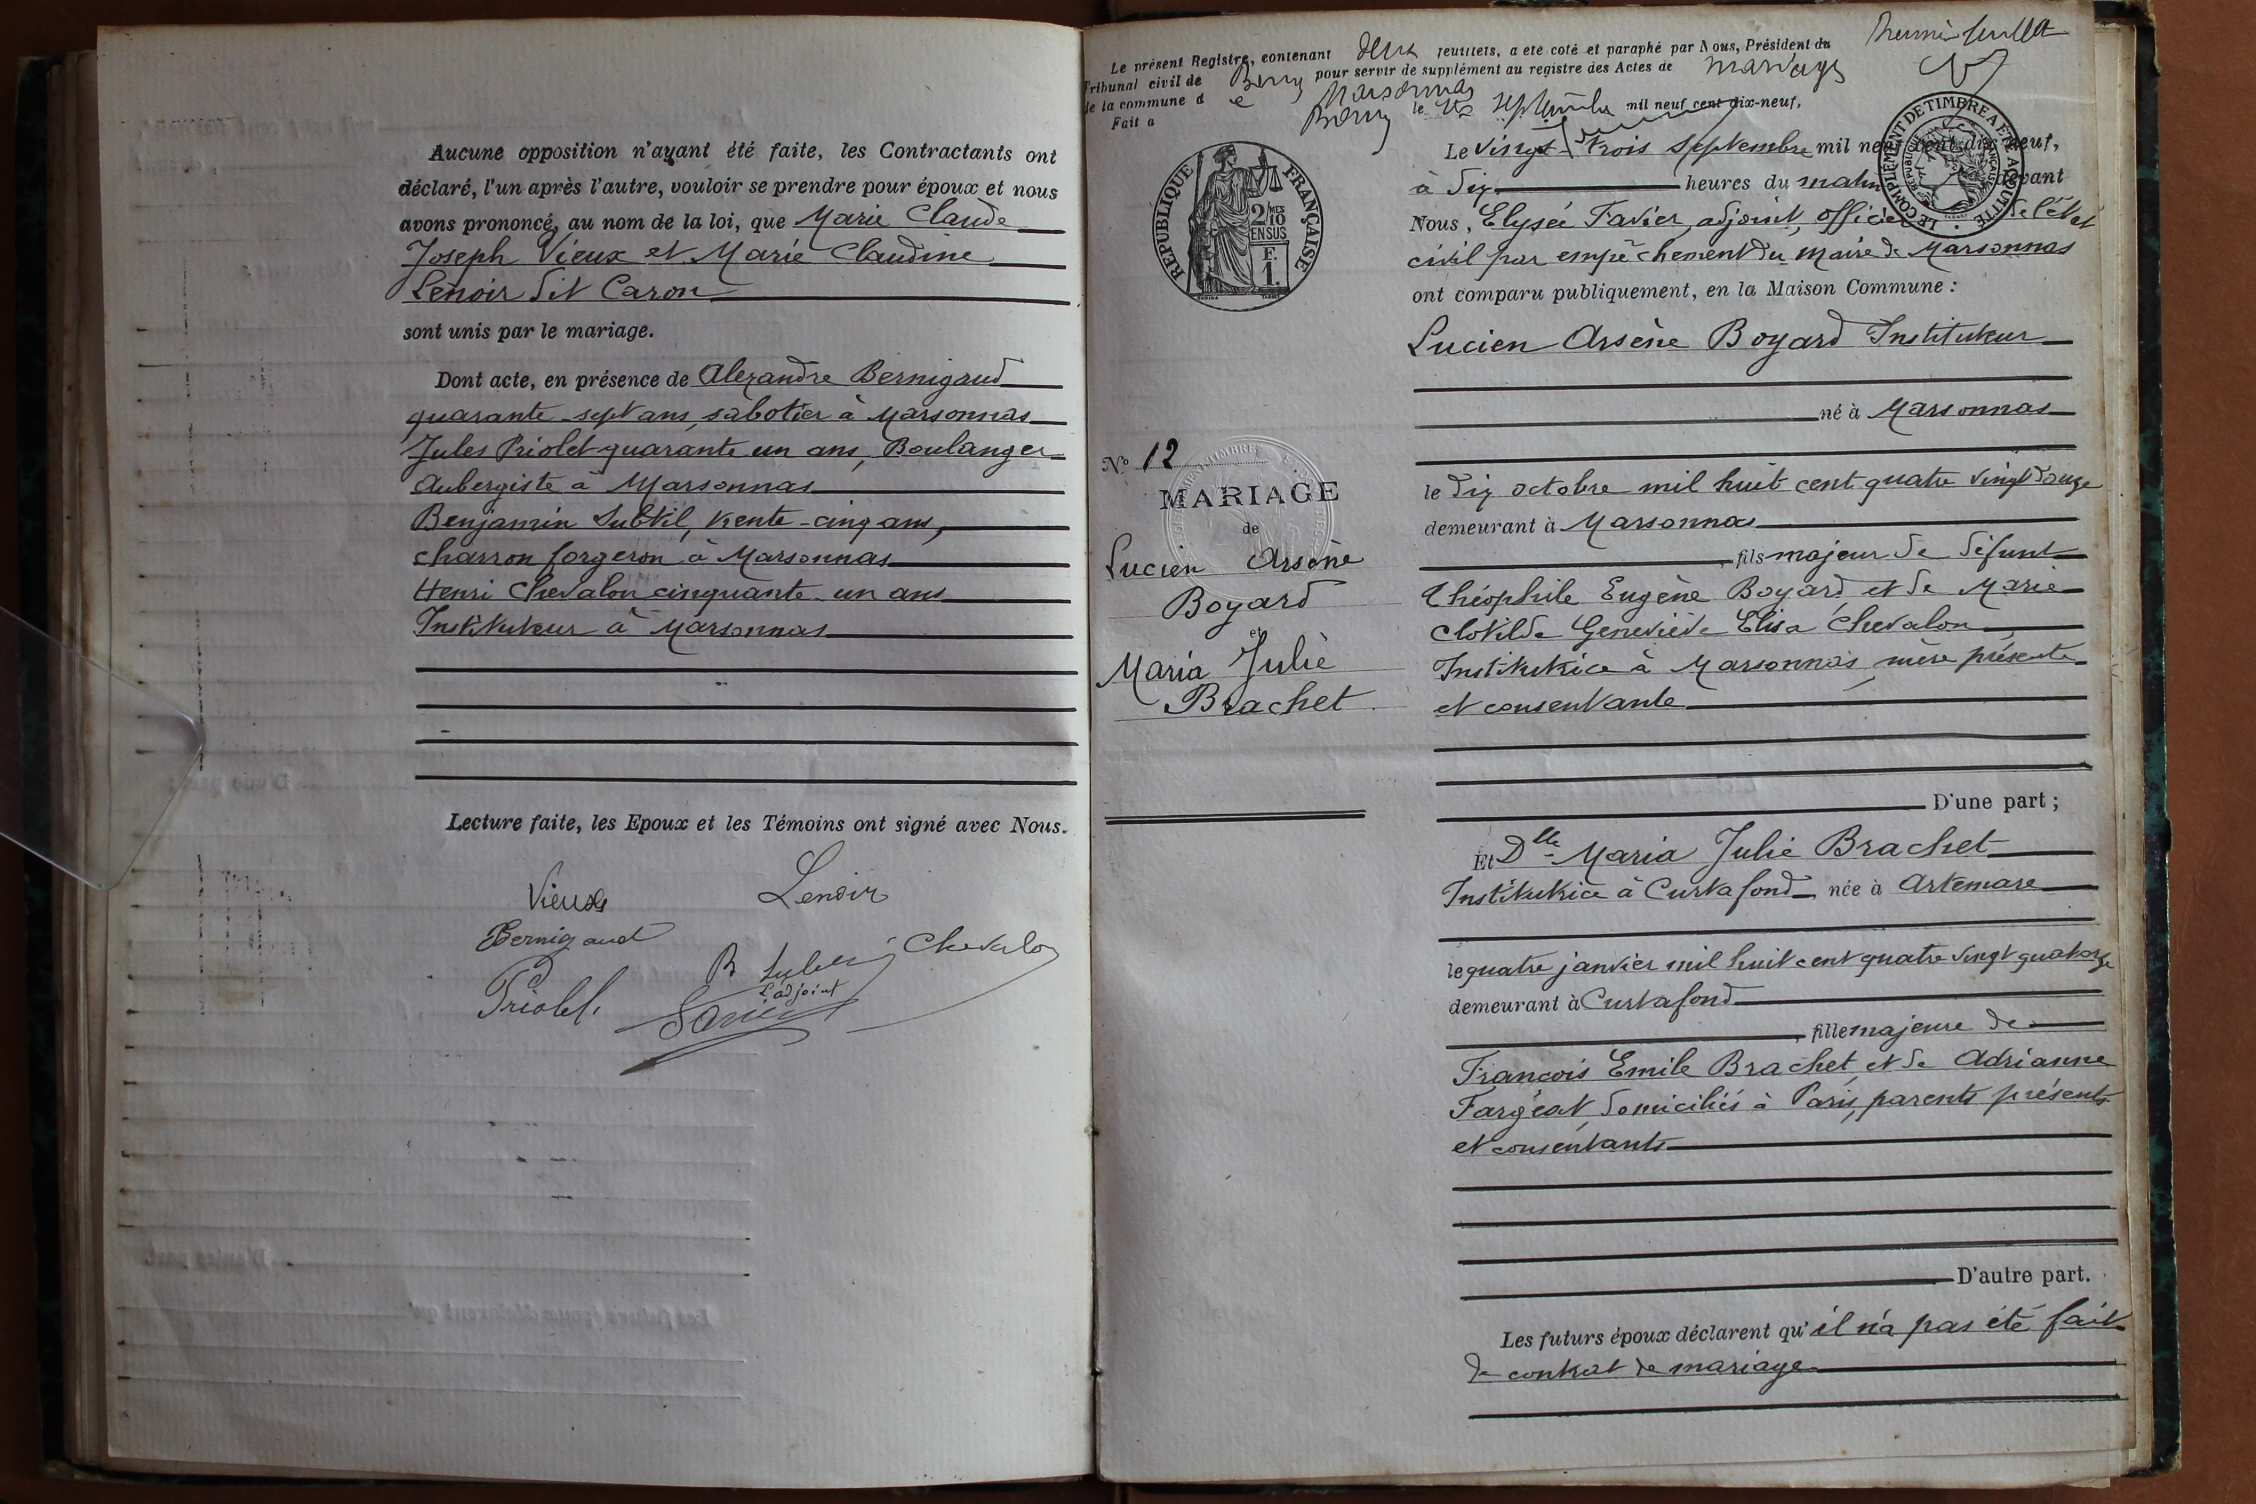 Aucune opposition n'ayant été faite, les Contractants ont
déclaré, l'un après l'autre, vouloir se prendre pour époux et nous
avons prononcé, au nom de la loi, que Marie Claude
Joseph Vieux et Marie Claudine
Lenoir dit Caron
sont unis par le mariage.
Dont acte, en présence de Alexandre Bernigaud
quarante-sept ans, sabotier à Marsonnas
Jules Priolet quarante un ans, Boulanger
Aubergiste à Marsonnas
Benjamin Subtil, trente-cinq ans,
charron forgeron à Marsonnas
Henri Chevalon cinquante-un ans
Instituteur à Marsonnas
Lecture faite, les Epoux et les Témoins ont signé avec Nous.
Vieux Lenoir
Bernigaud
B Chevalon
Priolet
L'adjoint
Favier
Premier feuillet
Le présent Registre, contenant deux feuillets, a été coté et paraphé par Nous, Président du
Tribunal civil de Bourg pour servir de supplément au registre des Actes de mariages
de la commune de Marsonnas
Fait a Bourg le septembre mil neuf cent dix-neuf.
REPUBLIQUE FRANÇAISE
2/10 MES
EN SUS
F.
1.
LE COMPLÉMENT DE TIMBRE A ÉTÉ ACQUITTÉ
REPUBLIQUE FRANÇAISE
Le vingt-trois septembre mil neuf cent dix-neuf,
à dix heures du matin devant
Nous, Elysée Favier, adjoint, officier de l'état
civil par empêchement du maire de Marsonnas
ont comparu publiquement, en la Maison Commune :
Lucien Arsène Boyard Instituteur
né à Marsonnas
le dix octobre mil huit cent quatre vingt douze
demeurant à Marsonnas
, fils majeur de défunt
Théophile Eugène Boyard et de Marie
Clotilde Geneviève Elisa Chevalon,
Institutrice à Marsonnas, mère présente
et consentante
D'une part ;
No 12
MARIAGE
de
Lucien Arsène
Boyard
et
Maria Julie
Brachet
Et Dlle Maria Julie Brachet
Institutrice à Curtafond née à Artemare
le quatre janvier mil huit cent quatre vingt quatorze
demeurant à Curtafond
, fille majeure de
François Emile Brachet, et de Adrianne
Fargeot, domiciliés à Paris, parents présents
et consentants
D'autre part.
Les futurs époux déclarent qu'il n'a pas été fait
de contrat de mariage